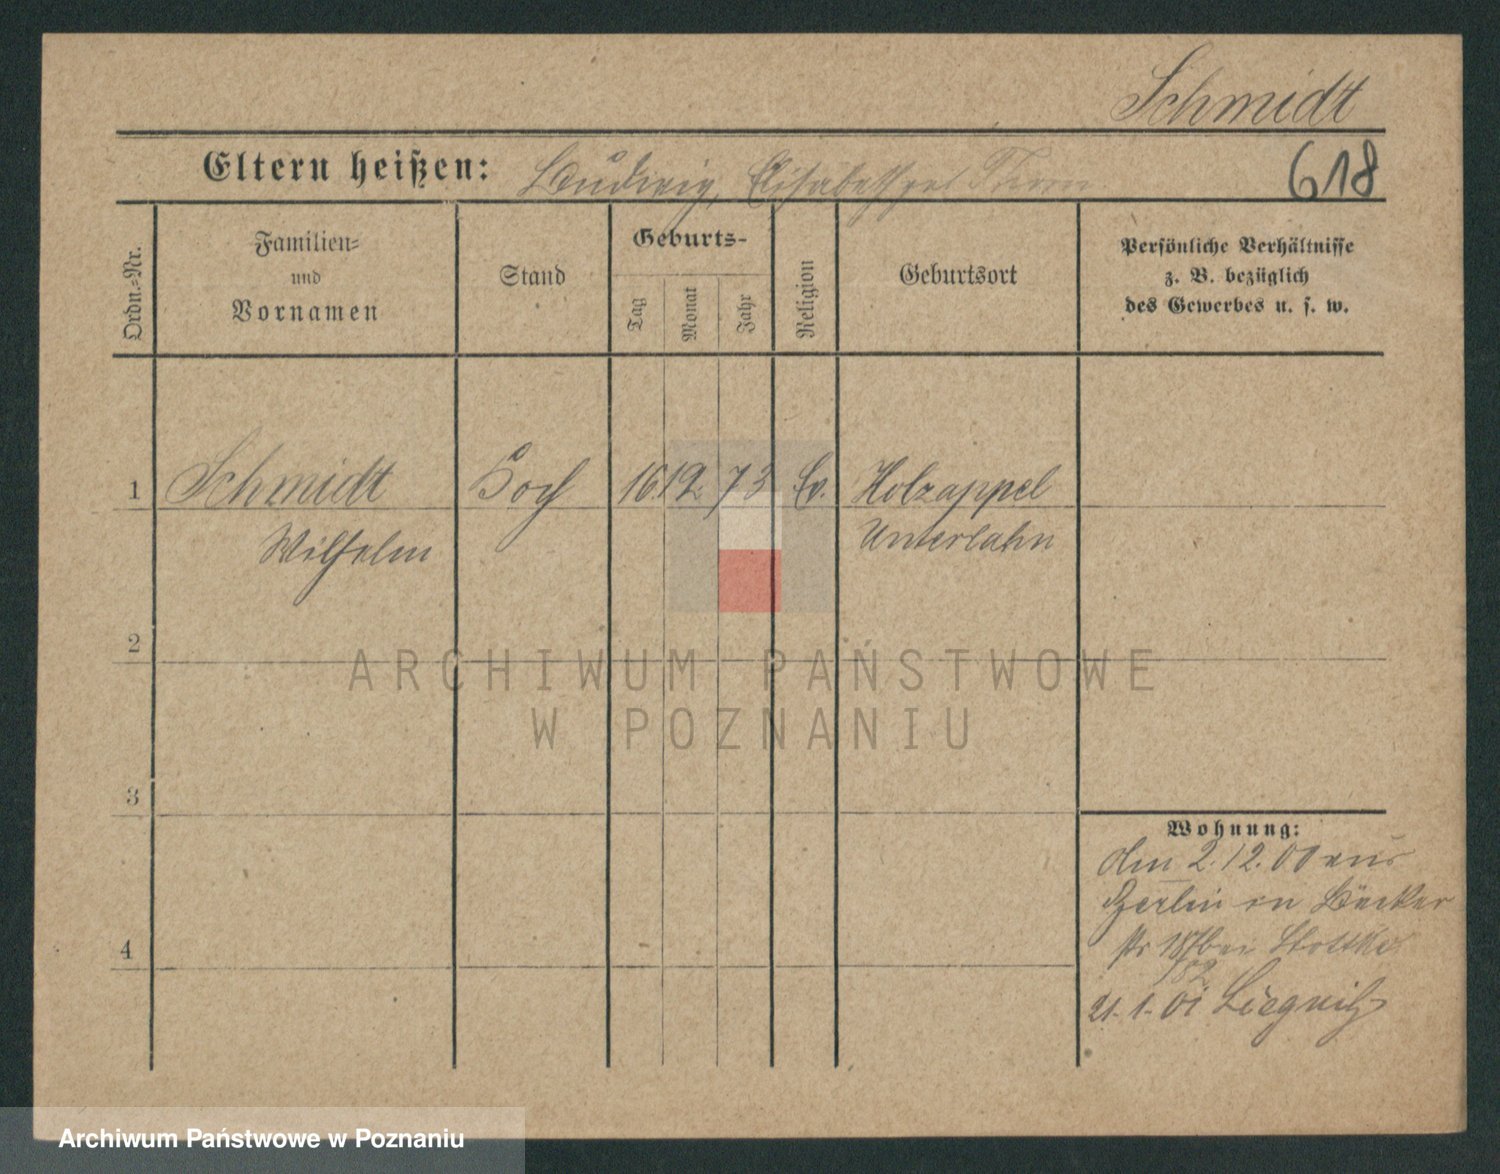 Schmidt
Eltern heißen: Ludwig, Elisabeth
618
Ordn.-Nr.
Familien-
und
Vornamen
Stand
Geburts-
Tag
Monat
Jahr
Religion
Geburtsort
Persönliche Verhältnisse
z. B. bezüglich
des Gewerbes u. s. w.
1 Schmidt Koch 16 12 73 Ev. Holzappel
Wilhelm Unterlahn
2
ARCHIWUM PAŃSTWOWE
W POZNANIU
3
Wohnung:
Am 2.12.00 aus
Berlin in Bäcker
str 18 bei
4
21.1.01 Liegnitz
Archiwum Państwowe w Poznaniu